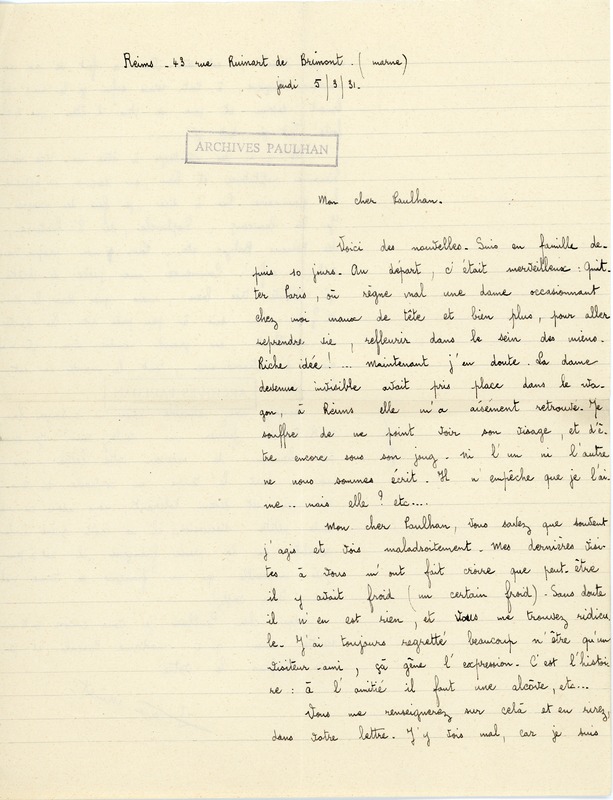 Reims - 43 rue Ruinart de Brimont. (marne)
jeudi 5/3/31.
ARCHIVES PAULHAN
Mon cher Paulhan.
Voici des nouvelles. Suis en famille de-
puis 10 jours. Au départ, c'était merveilleux : Quit-
ter Paris, où règne mal une dame occasionnant
chez moi maux de tête et bien plus, pour aller
reprendre vie, refleurir dans le sein des miens.
Riche idée ! ... maintenant j'en doute. La dame
devenue invisible avait pris place dans le wa-
gon, à Reims elle m'a aisément retrouvé. Je
souffre de ne point voir son visage, et d'ê-
tre encore sous son joug. ni l'un ni l'autre
ne nous sommes écrit. Il n'empêche que je l'ai-
me .. mais elle ? etc....
Mon cher Paulhan, vous savez que souvent
j'agis et vois maladroitement. Mes dernières visi-
tes à vous m'ont fait croire que peut-être
il y avait froid (un certain froid). Sans doute
il n'en est rien, et vous me trouvez ridicu
le. J'ai toujours regretté beaucoup n'être qu'un
visiteur-ami, çà gêne l'expression. C'est l'histoi-
re : à l'amitié il faut une alcôve, etc...
Vous me renseignerez sur celà et en rirez,
dans votre lettre. J'y vois mal, car je suis